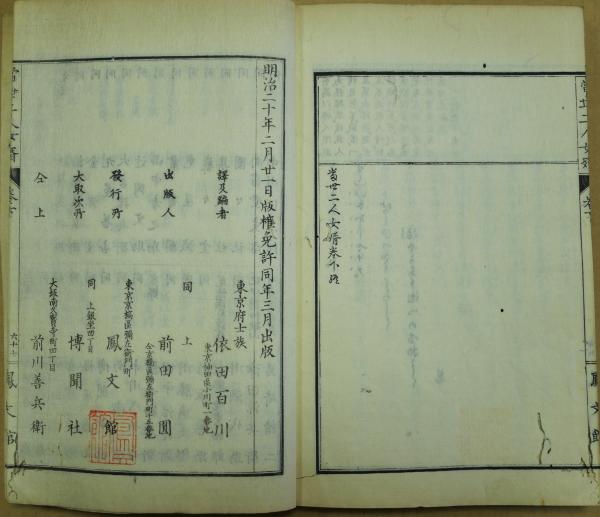 當世二人女婿巻下終
明治二十年二月廿一日版權免許同年三月出版
譯及編者
東京府士族
依田百川
東京神田區小川町一番地
出版人
同上
前田圓
仝京橋區彌左衛門町十五番地
發行所
東京京橋區彌左衛門町
鳳文館
大取次所
同上銀座四丁目
博聞社
仝上
大坂南久寶寺町四丁目
前川善兵衛
當世二人女婿
卷下
六十七
鳳文館